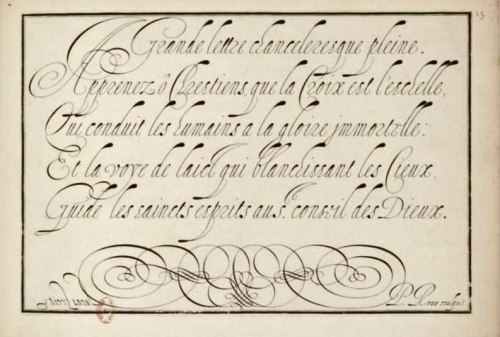 15
Grande lettre chanceleresque pleine.
Apprenez ô Chrestiens, que la Croix est l'eschelle,
Qui conduit les humains a la gloire jmmortelle:
Et la voye de laict qui blanchissant les Cieux,
Guide les saincts esprits au St. conseil des Dieux.